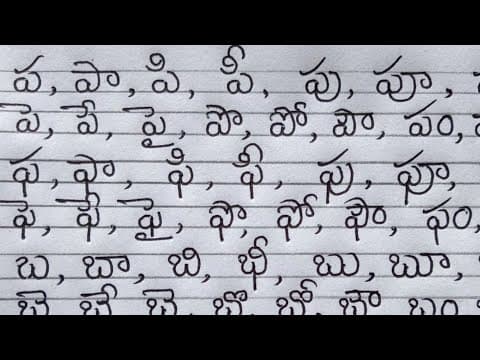 ప, పా, పి, పీ, పు, పూ,
పె, పే, పై, పొ, పో, పౌ, పం,
ఫ, ఫా, ఫి, ఫీ, ఫు, ఫూ,
ఫె, ఫే, ఫై, ఫొ, ఫో, ఫౌ, ఫం,
బ, బా, బి, బీ, బు, బూ,
బె, బే, బై, బొ, బో, బౌ, బం